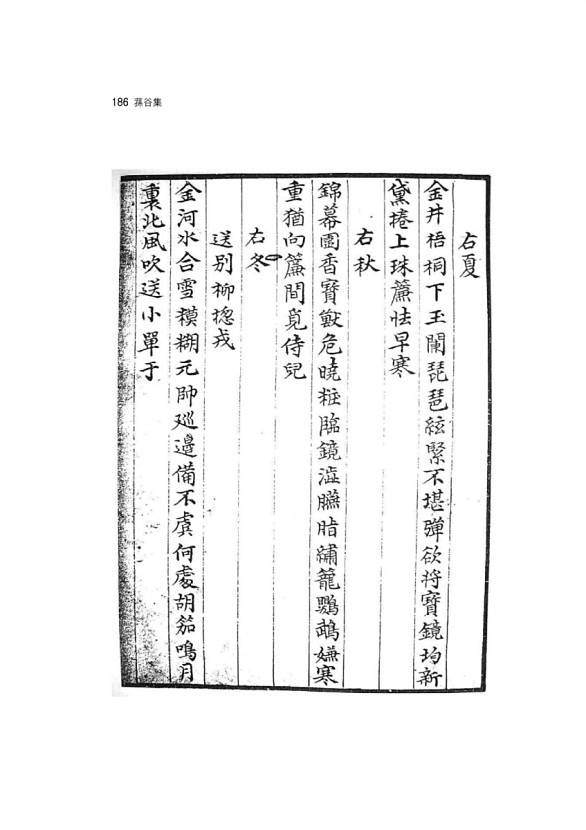 186 蓀谷集
右夏
金井梧桐下玉闌琵琶絃緊不堪彈欲將寳鏡均新
黛捲上珠簾怯早寒
右秋
錦幕圍香寳獸危曉粧臨鏡澁臙脂繡籠鸚鵡嫌寒
重猶向簾間覓侍兒
右冬
送别柳摠戎
金河水合雪糢糊元帥廵邉備不虞何處胡笳鳴月
裏北風吹送小單于